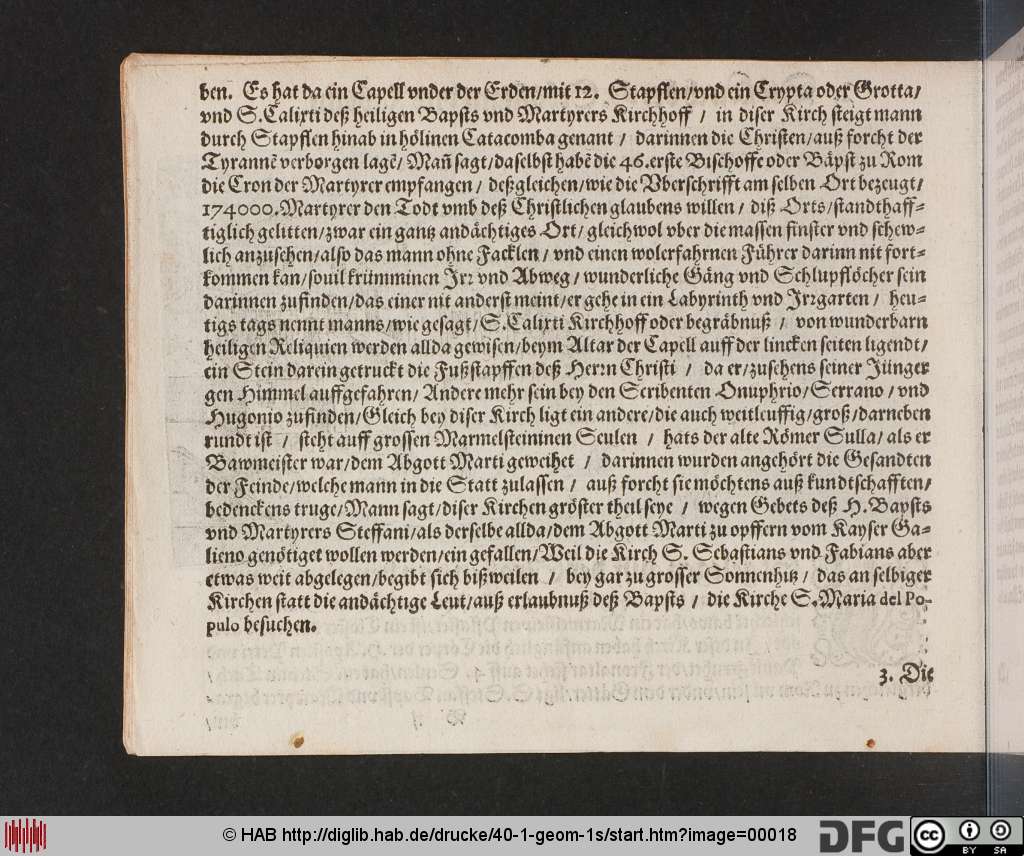 ben. Es hat da ein Capell vnder der Erden/mit 12. Stapflen/vnd ein Crypta oder Grotta/
vnd S.Calixti deß heiligen Bapsts vnd Martyrers Kirchhoff / in diser Kirch steigt mann
durch Stapflen hinab in hölinen Catacomba genant / darinnen die Christen/auß forcht der
Tyrannē verborgen lagē/ Mañ sagt/daselbst habē die 46.erste Bischoffe oder Bäpst zu Rom
die Cron der Martyrer empfangen / deßgleichen/wie die Vberschrifft am selben Ort bezeugt/
174000.Martyrer den Todt vmb deß Christlichen glaubens willen / diß Orts/standthaff-
tiglich gelitten/zwar ein gantz andächtiges Ort/ gleichwol vber die massen finster vnd schew-
lich anzusehen/also das mann ohne Facklen / vnd einen wolerfahrnen Führer darinn nit fort-
kommen kan/souil krümminen Irr vnd Abweg/ wunderliche Gäng vnd Schlupflöcher sein
darinnen zufinden/das einer nit anderst meint/er gehe in ein Labyrinth vnd Irrgarten / heu-
tigs tags nennt manns/wie gesagt/S.Calixti Kirchhoff oder begräbnuß / von wunderbarn
heiligen Reliquien werden allda gewisen/beym Altar der Capell auff der lincken seiten ligendt/
ein Stein darein getruckt die Fußstapffen deß Herrn Christi / da er/zusehens seiner Jünger
gen Himmel auffgefahren/ Andere mehr sein bey den Scribenten Onuphrio/Serrano / vnd
Hugonio zufinden/Gleich bey diser Kirch ligt ein andere/die auch weitleuffig/groß/darneben
rundt ist / steht auff grossen Marmelsteininen Seulen / hats der alte Römer Sulla/ als er
Bawmeister war/dem Abgott Marti geweihet / darinnen wurden angehört die Gesandten
der Feinde/welche mann in die Statt zulassen / auß forcht sie möchtens auß kundtschafften/
bedenckens truge/Mann sagt/diser Kirchen gröster theil seye / wegen Gebets deß H.Bapsts
vnd Martyrers Steffani/als derselbe allda/dem Abgott Marti zu opffern vom Kayser Ga-
lieno genötiget wollen werden/ein gefallen/Weil die Kirch S. Sebastians vnd Fabians aber
etwas weit abgelegen/begibt sich bißweilen / bey gar zu grosser Sonnenhitz / das an selbiger
Kirchen statt die andächtige Leut/auß erlaubnuß deß Bapsts / die Kirche S.Maria del Po-
pulo besuchen.
3. Die
© HAB http://diglib.hab.de/drucke/40-1-geom-1s/start.htm?image=00018
DFG
cc BY SA